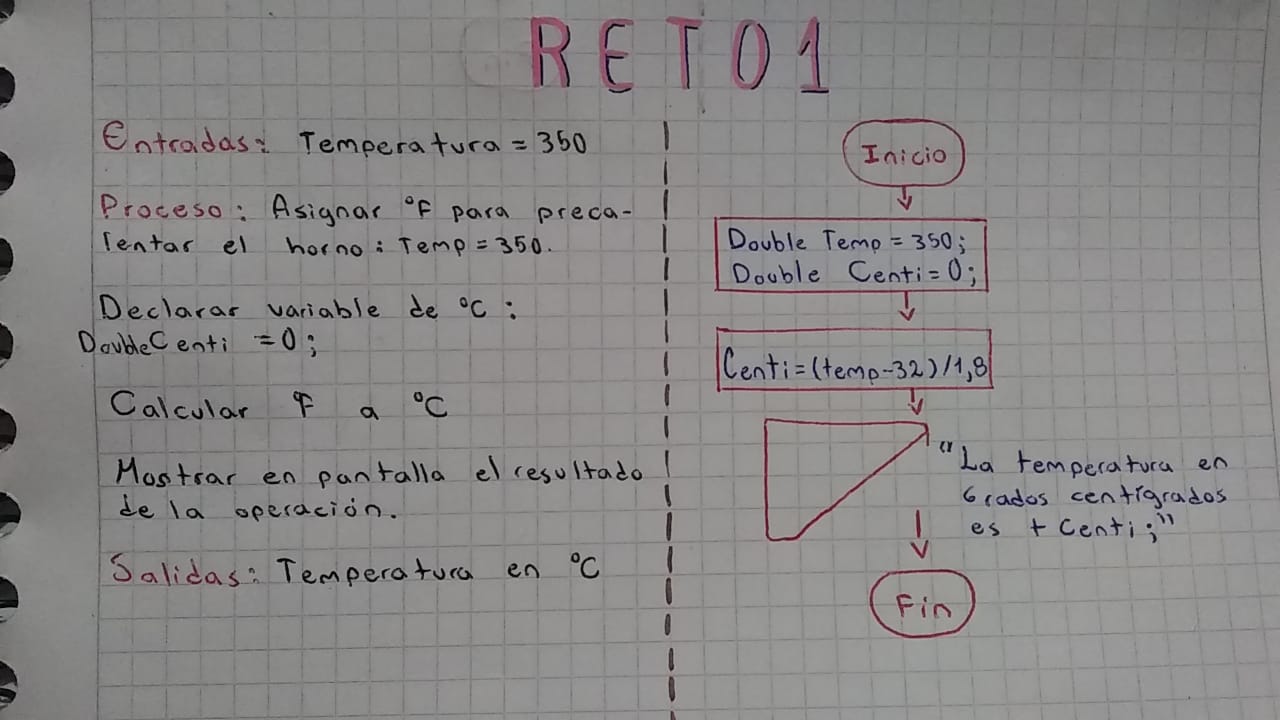 RETO1
Entradas: Temperatura = 350
Proceso: Asignar °F para preca-
lentar el horno: Temp = 350.
Declarar variable de °C:
DoubleCenti = 0;
Calcular °F a °C
Mostrar en pantalla el resultado
de la operación.
Salidas: Temperatura en °C
Inicio
Double Temp = 350;
Double Centi = 0;
Centi = (temp-32)/1,8
"La temperatura en
Grados centígrados
es + Centi;"
Fin